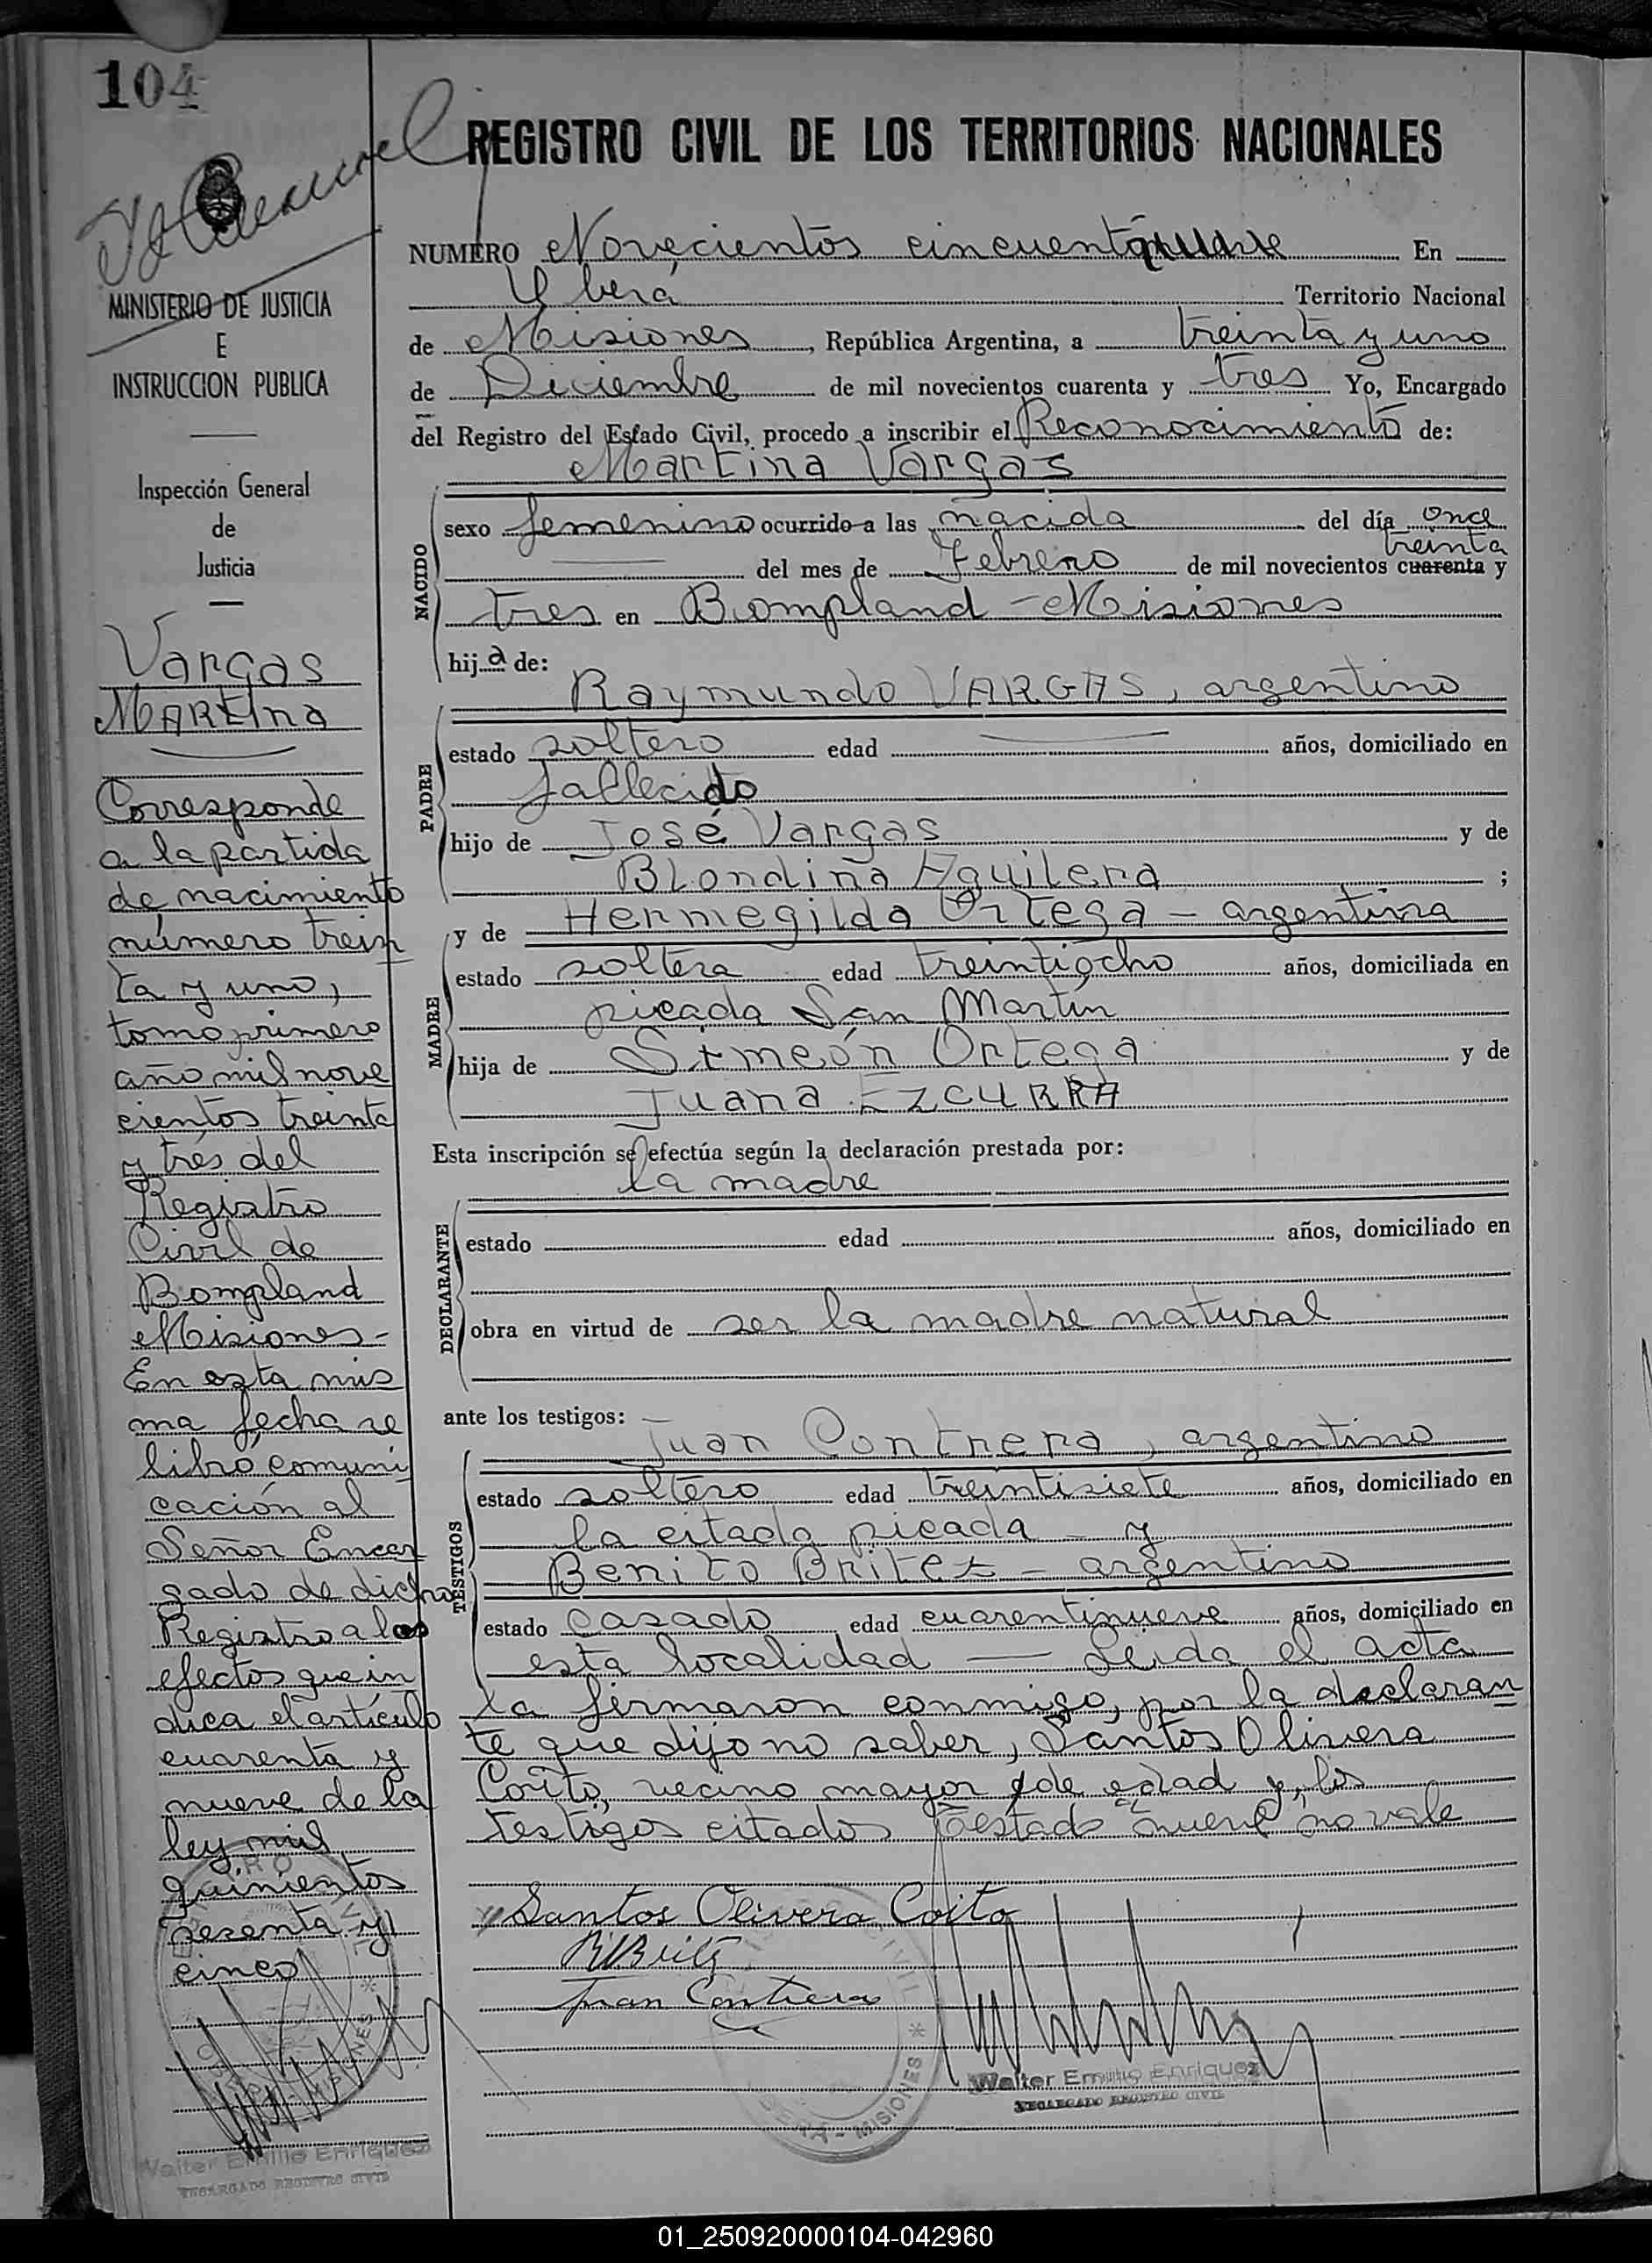 104
REGISTRO CIVIL DE LOS TERRITORIOS NACIONALES
MINISTERIO DE JUSTICIA
E
INSTRUCCION PUBLICA
Inspección General
de
Justicia
Vargas
Martina
Corresponde
a la partida
de nacimiento
número trein
ta y uno,
tomo primero
año mil nove
cientos treinta
y tres del
Registro
Civil de
Bompland
Misiones-
En esta mis
ma fecha se
libró comuni
cación al
Señor Encar
gado de dicho
Registro a los
efectos que in
dica el artículo
cuarenta y
nueve de la
ley mil
quinientos
sesenta y
cinco
Walter Emilio Enriquez
ENCARGADO REGISTRO CIVIL
NUMERO Novecientos cincuenta En
Oberá Territorio Nacional
de Misiones, República Argentina, a treinta y uno
de Diciembre de mil novecientos cuarenta y tres Yo, Encargado
del Registro del Estado Civil, procedo a inscribir el Reconocimiento de:
Martina Vargas
NACIDO
sexo femenino ocurrido a las nacida del día once
treinta
del mes de Febrero de mil novecientos cuarenta y
tres en Bompland - Misiones
hija de:
Raymundo VARGAS, argentino
PADRE
estado soltero edad años, domiciliado en
fallecido
hijo de José Vargas y de
Blondina Aguilera ;
y de Hermegilda Ortega - argentina
MADRE
estado soltera edad treintiocho años, domiciliada en
picada San Martín
hija de Simeón Ortega y de
Juana EZCURRA
Esta inscripción se efectúa según la declaración prestada por:
la madre
DECLARANTE
estado edad años, domiciliado en
obra en virtud de ser la madre natural
ante los testigos:
Juan Contrera, argentino
TESTIGOS
estado soltero edad treintisiete años, domiciliado en
la citada picada - y
Benito Britez - argentino
estado casado edad cuarentinueve años, domiciliado en
esta localidad — Leida el acta
la firmaron conmigo, por la declaran
te que dijo no saber, Santos Olivera
Coito, vecino mayor de edad y, los
testigos citados Testado "nueve" no vale
Santos Olivera Coito
Juan Contrera
Walter Emilio Enriquez
ENCARGADO REGISTRO CIVIL
OBERÁ - MISIONES
01_250920000104-042960